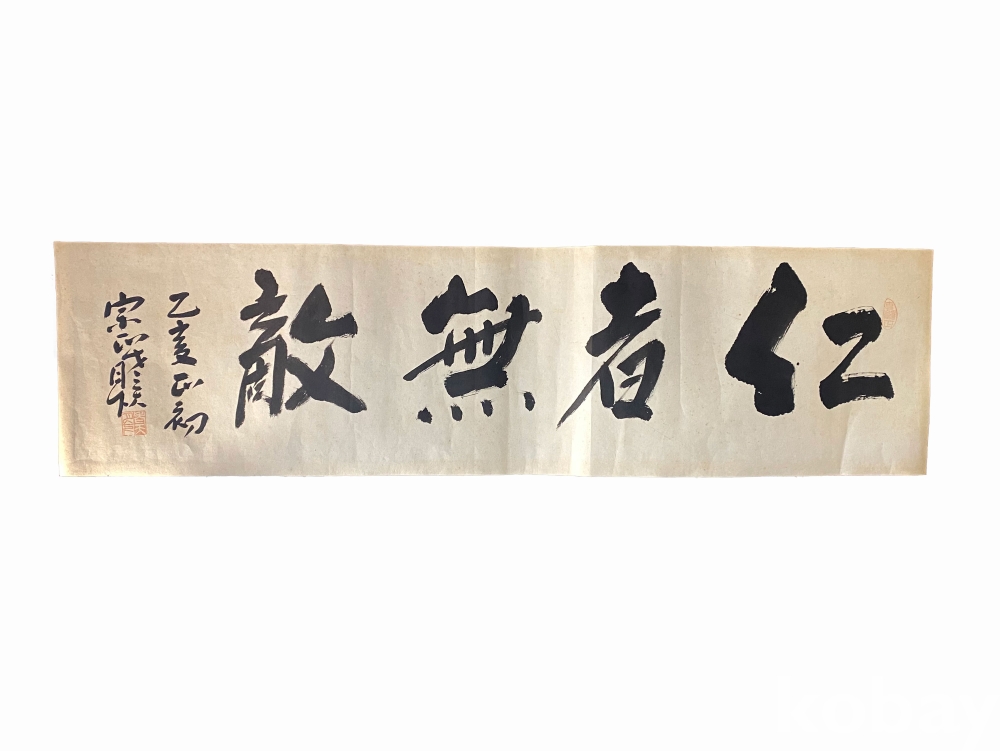 仁者無敵
乙亥正初
宗正
kobay